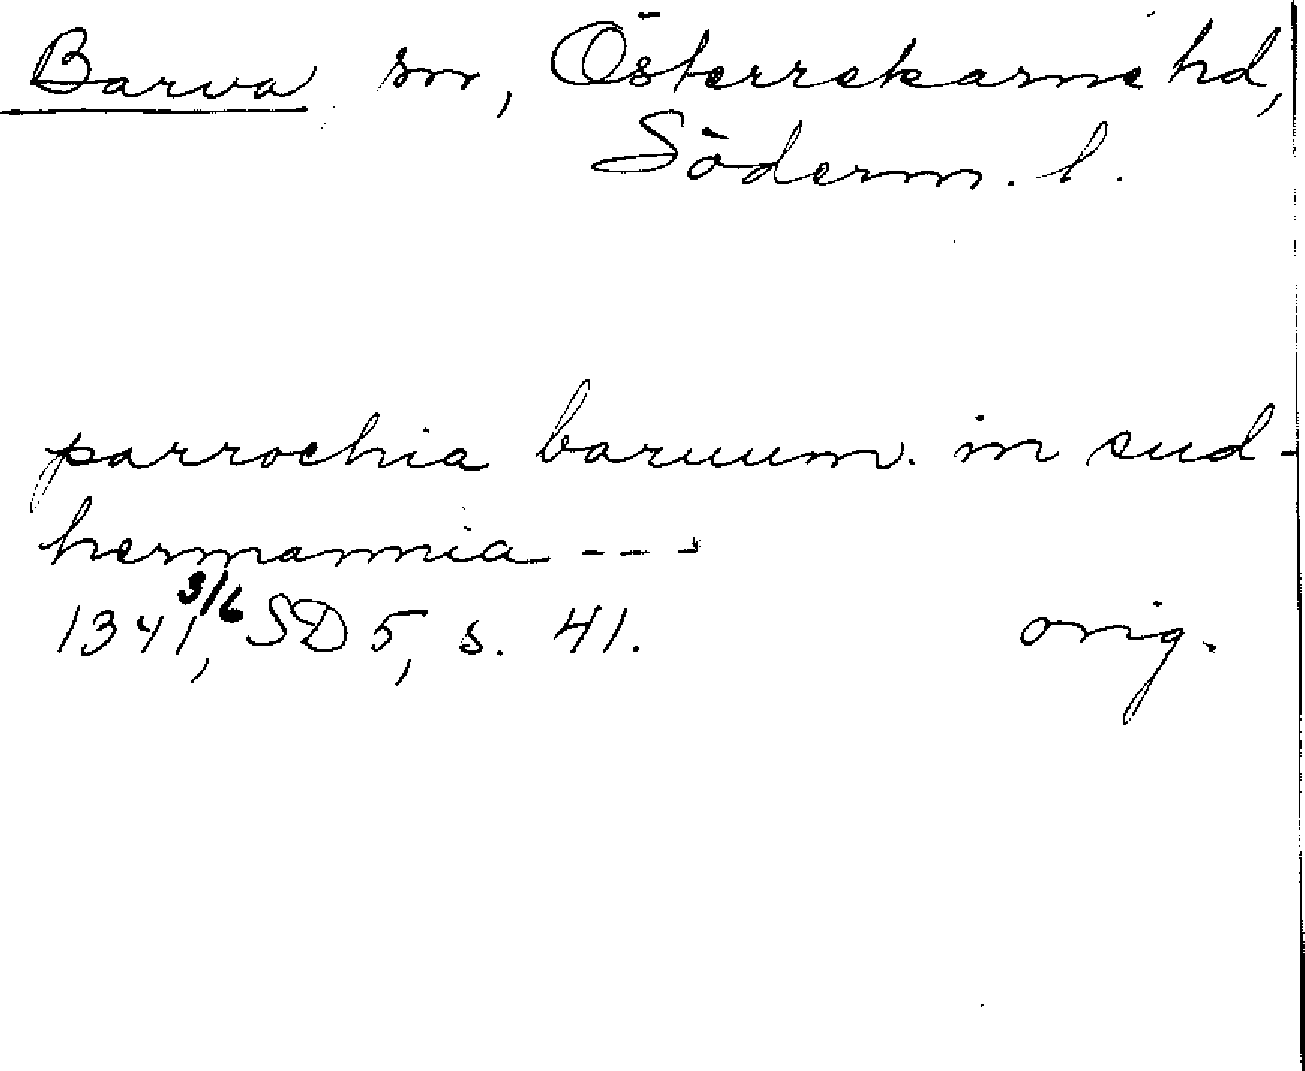 Barva sn, Österrekarne hd,
Söderm. l.
parrochia baruum. in sud-
hermannia ---
1341 3/6, SD 5, s. 41. orig.